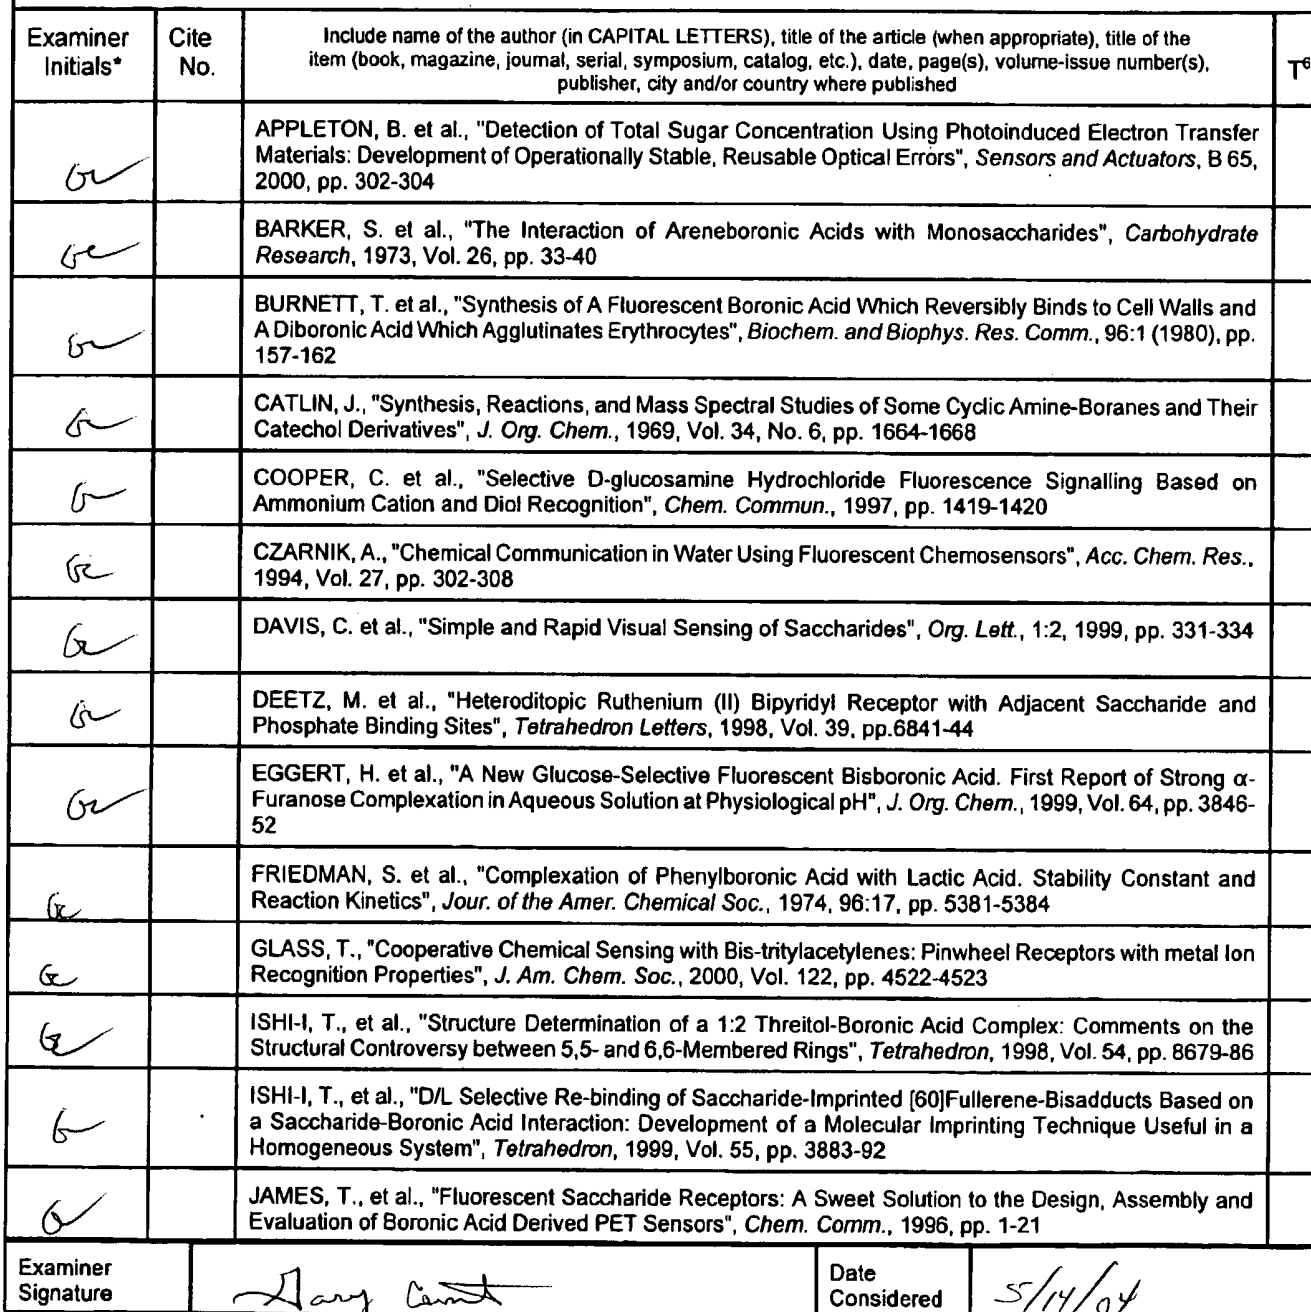 Examiner Initials*
Cite No.
Include name of the author (in CAPITAL LETTERS), title of the article (when appropriate), title of the
item (book, magazine, journal, serial, symposium, catalog, etc.), date, page(s), volume-issue number(s),
publisher, city and/or country where published
T6
APPLETON, B. et al., "Detection of Total Sugar Concentration Using Photoinduced Electron Transfer
Materials: Development of Operationally Stable, Reusable Optical Errors", Sensors and Actuators, B 65,
2000, pp. 302-304
BARKER, S. et al., "The Interaction of Areneboronic Acids with Monosaccharides", Carbohydrate
Research, 1973, Vol. 26, pp. 33-40
BURNETT, T. et al., "Synthesis of A Fluorescent Boronic Acid Which Reversibly Binds to Cell Walls and
A Diboronic Acid Which Agglutinates Erythrocytes", Biochem. and Biophys. Res. Comm., 96:1 (1980), pp.
157-162
CATLIN, J., "Synthesis, Reactions, and Mass Spectral Studies of Some Cyclic Amine-Boranes and Their
Catechol Derivatives", J. Org. Chem., 1969, Vol. 34, No. 6, pp. 1664-1668
COOPER, C. et al., "Selective D-glucosamine Hydrochloride Fluorescence Signalling Based on
Ammonium Cation and Diol Recognition", Chem. Commun., 1997, pp. 1419-1420
CZARNIK, A., "Chemical Communication in Water Using Fluorescent Chemosensors", Acc. Chem. Res.,
1994, Vol. 27, pp. 302-308
DAVIS, C. et al., "Simple and Rapid Visual Sensing of Saccharides", Org. Lett., 1:2, 1999, pp. 331-334
DEETZ, M. et al., "Heteroditopic Ruthenium (II) Bipyridyl Receptor with Adjacent Saccharide and
Phosphate Binding Sites", Tetrahedron Letters, 1998, Vol. 39, pp.6841-44
EGGERT, H. et al., "A New Glucose-Selective Fluorescent Bisboronic Acid. First Report of Strong α-
Furanose Complexation in Aqueous Solution at Physiological pH", J. Org. Chem., 1999, Vol. 64, pp. 3846-
52
FRIEDMAN, S. et al., "Complexation of Phenylboronic Acid with Lactic Acid. Stability Constant and
Reaction Kinetics", Jour. of the Amer. Chemical Soc., 1974, 96:17, pp. 5381-5384
GLASS, T., "Cooperative Chemical Sensing with Bis-tritylacetylenes: Pinwheel Receptors with metal Ion
Recognition Properties", J. Am. Chem. Soc., 2000, Vol. 122, pp. 4522-4523
ISHI-I, T., et al., "Structure Determination of a 1:2 Threitol-Boronic Acid Complex: Comments on the
Structural Controversy between 5,5- and 6,6-Membered Rings", Tetrahedron, 1998, Vol. 54, pp. 8679-86
ISHI-I, T., et al., "D/L Selective Re-binding of Saccharide-Imprinted [60]Fullerene-Bisadducts Based on
a Saccharide-Boronic Acid Interaction: Development of a Molecular Imprinting Technique Useful in a
Homogeneous System", Tetrahedron, 1999, Vol. 55, pp. 3883-92
JAMES, T., et al., "Fluorescent Saccharide Receptors: A Sweet Solution to the Design, Assembly and
Evaluation of Boronic Acid Derived PET Sensors", Chem. Comm., 1996, pp. 1-21
Examiner Signature
Gary
Date Considered
5/14/04